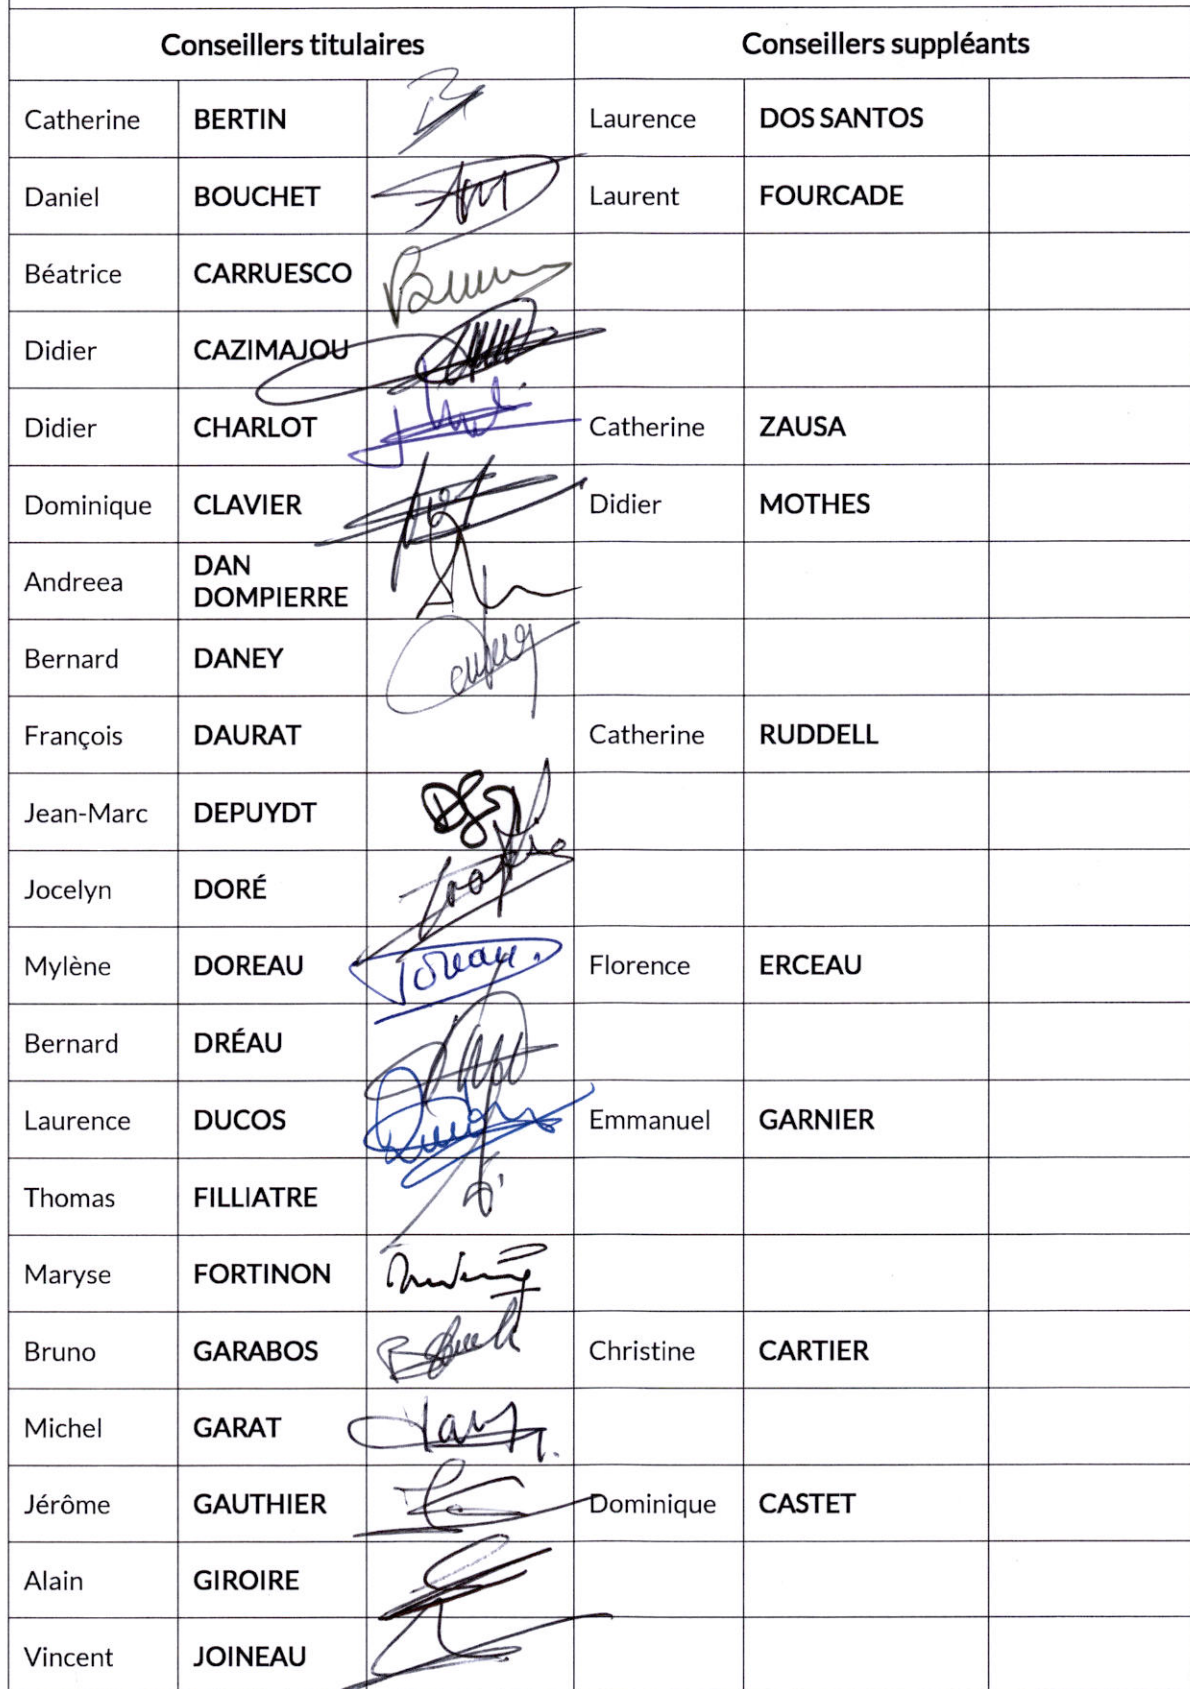 Conseillers titulaires Conseillers suppléants
Catherine BERTIN Laurence DOS SANTOS
Daniel BOUCHET Laurent FOURCADE
Béatrice CARRUESCO
Didier CAZIMAJOU
Didier CHARLOT Catherine ZAUSA
Dominique CLAVIER Didier MOTHES
Andreea DAN DOMPIERRE
Bernard DANEY
François DAURAT Catherine RUDDELL
Jean-Marc DEPUYDT
Jocelyn DORÉ
Mylène DOREAU Florence ERCEAU
Bernard DRÉAU
Laurence DUCOS Emmanuel GARNIER
Thomas FILLIATRE
Maryse FORTINON
Bruno GARABOS Christine CARTIER
Michel GARAT
Jérôme GAUTHIER Dominique CASTET
Alain GIROIRE
Vincent JOINEAU